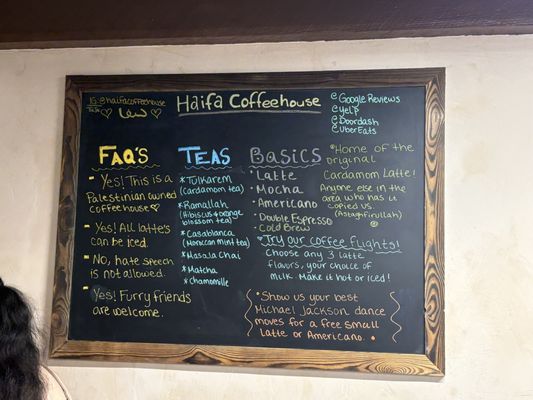 IG: @haifacoffeehouse
Haifa Coffeehouse
@ Google Reviews
@ Yelp
@ Doordash
@ UberEats
FAQ's
- Yes! This is a
Palestinian owned
coffeehouse ♡
- Yes! All latte's
can be iced.
- No, hate speech
is not allowed.
- Yes! Furry friends
are welcome.
TEAS
* Tulkarem
(Cardamom tea)
* Ramallah
(Hibiscus + orange
blossom tea)
* Casablanca
(Moroccan mint tea)
* Masala Chai
* Matcha
* Chamomille
Basics
• Latte
• Mocha
• Americano
• Double Espresso
• Cold Brew
* Home of the
original
Cardamom Latte!
Anyone else in the
area who has it
copied us.
(Astaghfirullah)
* Try our coffee flights!
Choose any 3 latte
flavors, your choice of
milk. Make it hot or iced!
* Show us your best
Michael Jackson dance
moves for a free small
Latte or Americano.